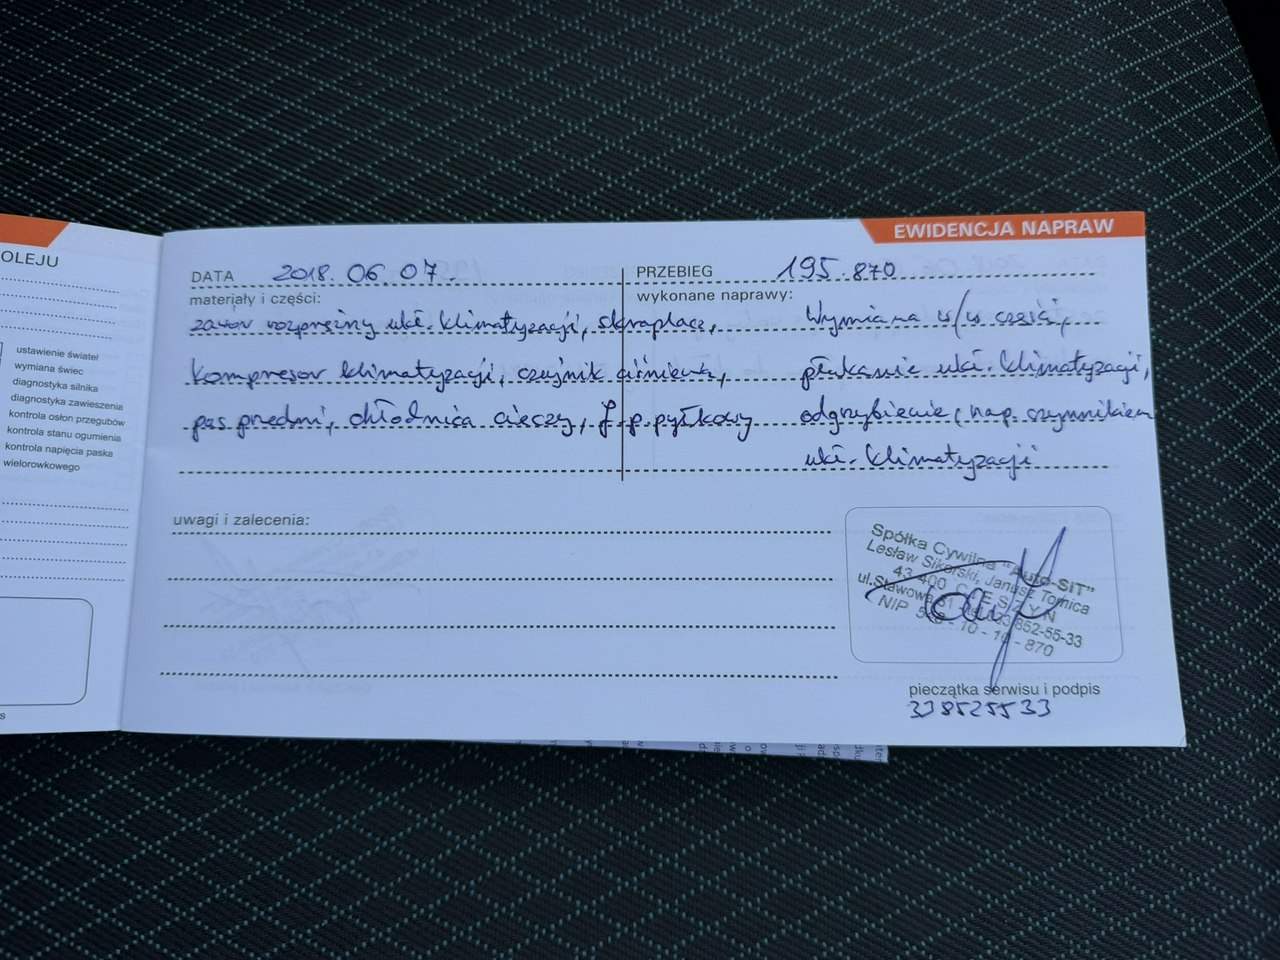 OLEJU
ustawienie świateł
wymiana świec
diagnostyka silnika
diagnostyka zawieszenia
kontrola osłon przegubów
kontrola stanu ogumienia
kontrola napięcia paska
wielorowkowego
EWIDENCJA NAPRAW
DATA 2018.06.07. PRZEBIEG 195.870
materiały i części: wykonane naprawy:
zawór rozprężny ukł. klimatyzacji, skraplacz, Wymiana w/w części,
kompresor klimatyzacji, czujnik ciśnienia, płukanie ukł. klimatyzacji,
pas przedni, chłodnica cieczy, f. p. pyłkowy odgrzybienie, nap. czynnikiem
ukł. klimatyzacji
uwagi i zalecenia:
Spółka Cywilna "Auto-SIT"
Lesław Sikorski, Janusz Tomica
43-400 CIESZYN
ul. Stawowa 852-55-33
NIP 548-10-10-870
pieczątka serwisu i podpis
338525533